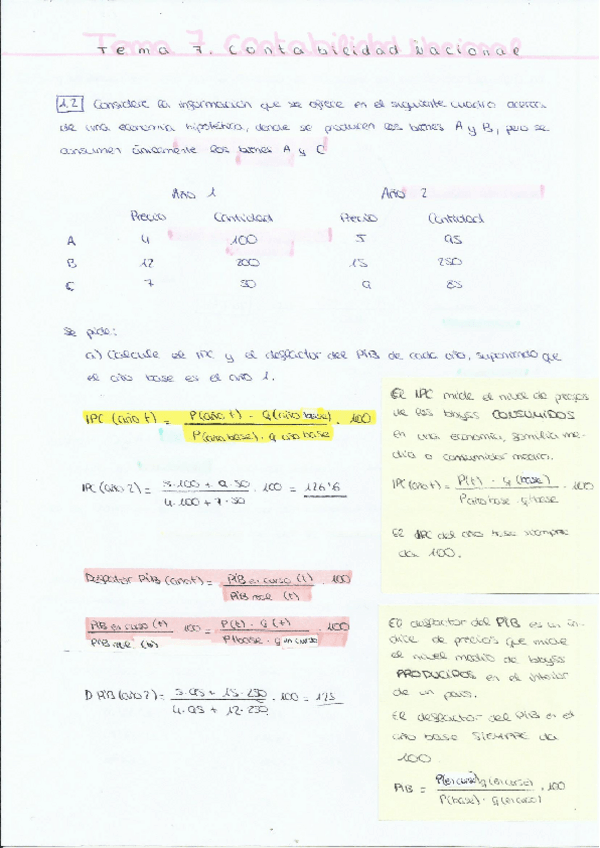 Tema 7. Contabilidad Nacional
Tema 7. Contabilidad Nacional
1.2 Considere la información que se ofrece en el siguiente cuadro acerca
de una economía hipotética, donde se producen los bienes A y B, pero se
consumen únicamente los bienes A y C
Año 1 Año 2
Precio Cantidad Precio Cantidad
A 4 100 5 95
B 12 200 15 250
C 7 50 9 85
se pide:
a) Calcule el IPC y el deflactor del PIB de cada año, suponiendo que
el año base es el año 1.
IPC (año t) = P(año t) · q(año base) / P(año base) · q año base · 100
El IPC mide el nivel de precios
de los bienes CONSUMIDOS
en una economía, familia me-
dia o consumidor medio.
IPC (año t) = P(t) · q (base) / P año base · q base · 100
El IPC del año base siempre
da 100.
IPC (año 2) = 5·100 + 9·50 / 4·100 + 7·50 · 100 = 126'6
Deflactor PIB (año t) = PIB en curso (t) / PIB real (t) · 100
PIB en curso (t) / PIB real (t) 100 = P(t) · q(t) / P base · q en curso · 100
D PIB (año 2) = 5·95 + 15·250 / 4·95 + 12·250 · 100 = 125
El deflactor del PIB es un ín-
dice de precios que mide
el nivel medio de bienes
PRODUCIDOS en el interior
de un país.
El deflactor del PIB en el
año base SIEMPRE da
100
PIB = P(en curso) q(en curso) / P(base) · q(en curso) · 100